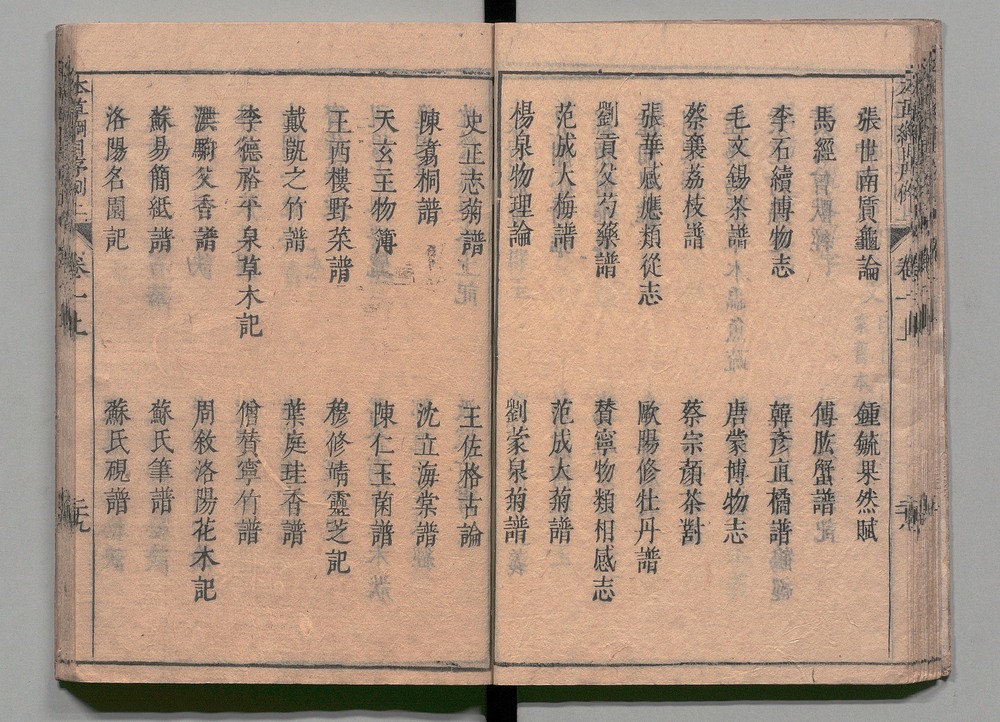 張世南質龜論　鍾毓果然賦
馬經　傅肱蟹譜
李石續博物志　韓彥直橘譜
毛文錫茶譜　唐蒙博物志
蔡襄荔枝譜　蔡宗顏茶對
張華感應類從志　歐陽修牡丹譜
劉貢父芍藥譜　贊寧物類相感志
范成大梅譜　范成大菊譜
楊泉物理論　劉蒙泉菊譜
史正志菊譜　王佐格古論
陳翥桐譜　沈立海棠譜
天玄主物簿　陳仁玉菌譜
王西樓野菜譜　穆修靖靈芝記
戴凱之竹譜　葉庭珪香譜
李德裕平泉草木記　僧贊寧竹譜
洪駒父香譜　周敘洛陽花木記
蘇易簡紙譜　蘇氏筆譜
洛陽名園記　蘇氏硯譜
本草綱目序例上　卷一上　二九